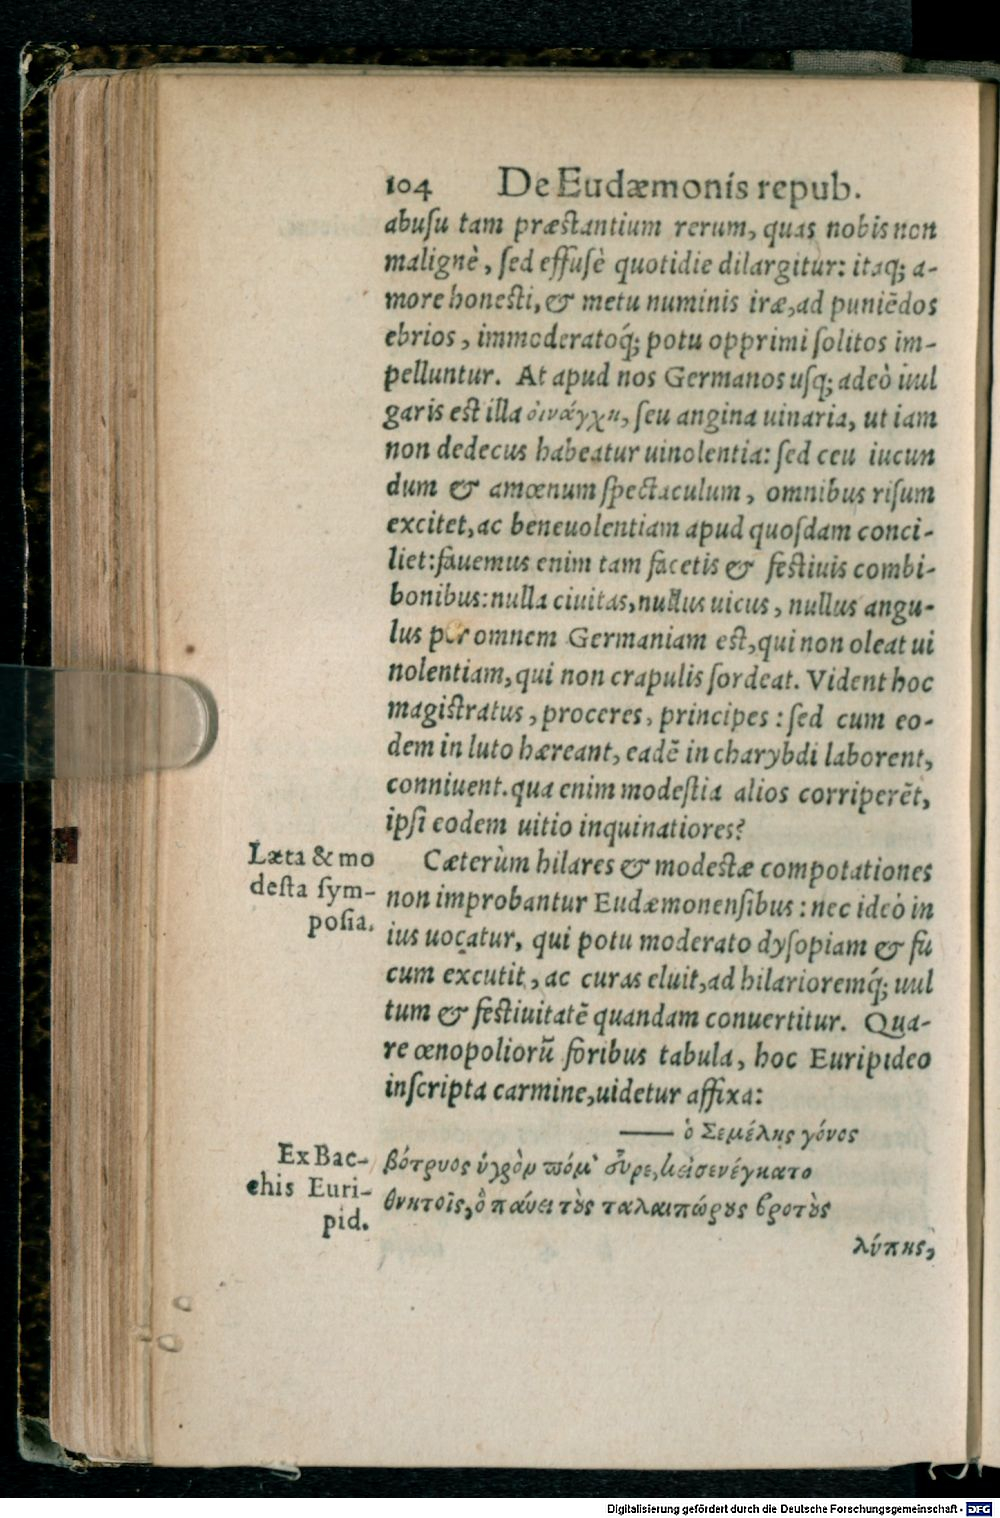 104 De Eudæmonis repub.
abusu tam præstantium rerum, quas nobis non
malignè, sed effusè quotidie dilargitur: itaq; a-
more honesti, & metu numinis iræ, ad puniẽdos
ebrios, immoderatoq́; potu opprimi solitos im-
pelluntur. At apud nos Germanos usq; adeò uul
garis est illa οἰνάγχη, seu angina uinaria, ut iam
non dedecus habeatur uinolentia: sed ceu iucun
dum & amœnum spectaculum, omnibus risum
excitet, ac beneuolentiam apud quosdam conci-
liet: fauemus enim tam facetis & festiuis combi-
bonibus: nulla ciuitas, nullus uicus, nullus angu-
lus per omnem Germaniam est, qui non oleat ui
nolentiam, qui non crapulis sordeat. Vident hoc
magistratus, proceres, principes: sed cum eo-
dem in luto hæreant, eadẽ in charybdi laborent,
conniuent. qua enim modestia alios corriperẽt,
ipsi eodem uitio inquinatiores?
Læta & mo
desta sym-
posia.
Cæterùm hilares & modestæ compotationes
non improbantur Eudæmonensibus: nec ideò in
ius uocatur, qui potu moderato dysopiam & fu
cum excutit, ac curas eluit, ad hilarioremq́; uul
tum & festiuitatẽ quandam conuertitur. Qua-
re œnopoliorũ foribus tabula, hoc Euripideo
inscripta carmine, uidetur affixa:
Ex Bac-
chis Euri-
pid.
—— ὁ Σεμέλης γόνος
βότρυος ὑγρὸν πόμ' εὗρε, κεἰσενέγκατο
θνητοῖς, ὃ παύει τοὺς ταλαιπώρους βροτοὺς
λύπης,
Digitalisierung gefördert durch die Deutsche Forschungsgemeinschaft - DFG